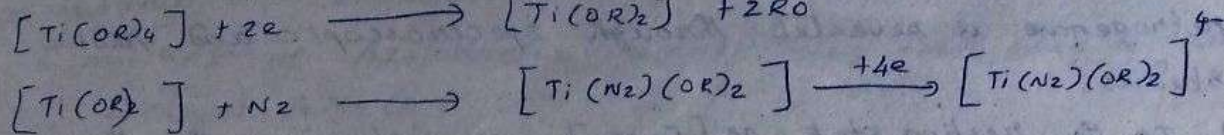 [Ti(OR)4] + 2e ⟶ [Ti(OR)2] + 2RO
[Ti(OR)2] + N2 ⟶ [Ti(N2)(OR)2] +4e ⟶ [Ti(N2)(OR)2]4-